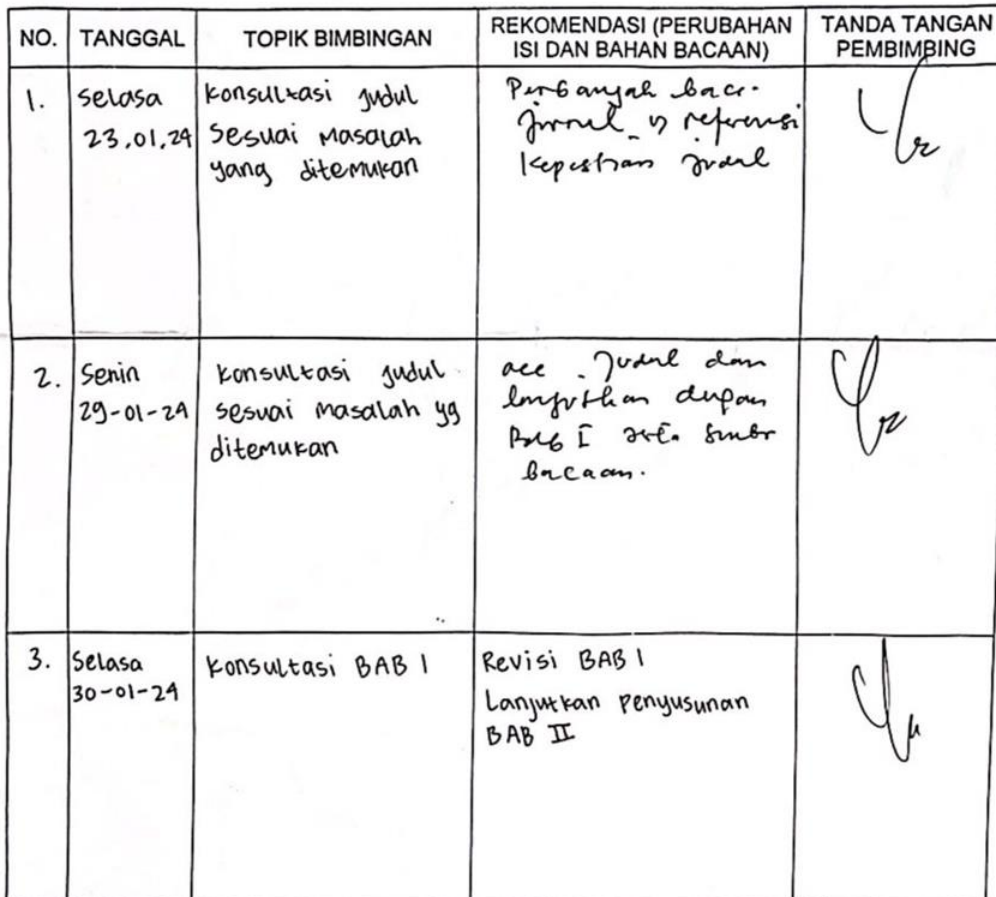 NO. TANGGAL TOPIK BIMBINGAN REKOMENDASI (PERUBAHAN ISI DAN BAHAN BACAAN) TANDA TANGAN PEMBIMBING
1.
Selasa
23.01.24
Konsultasi judul
sesuai masalah
yang ditemukan
Perbanyak baca
jurnal referensi
Kepastian judul
2.
Senin
29-01-24
Konsultasi judul
sesuai masalah yg
ditemukan
acc judul dan
lanjutkan dengan
Bab I serta sumber
bacaan.
3.
Selasa
30-01-24
Konsultasi BAB I
Revisi BAB I
Lanjutkan Penyusunan
BAB II